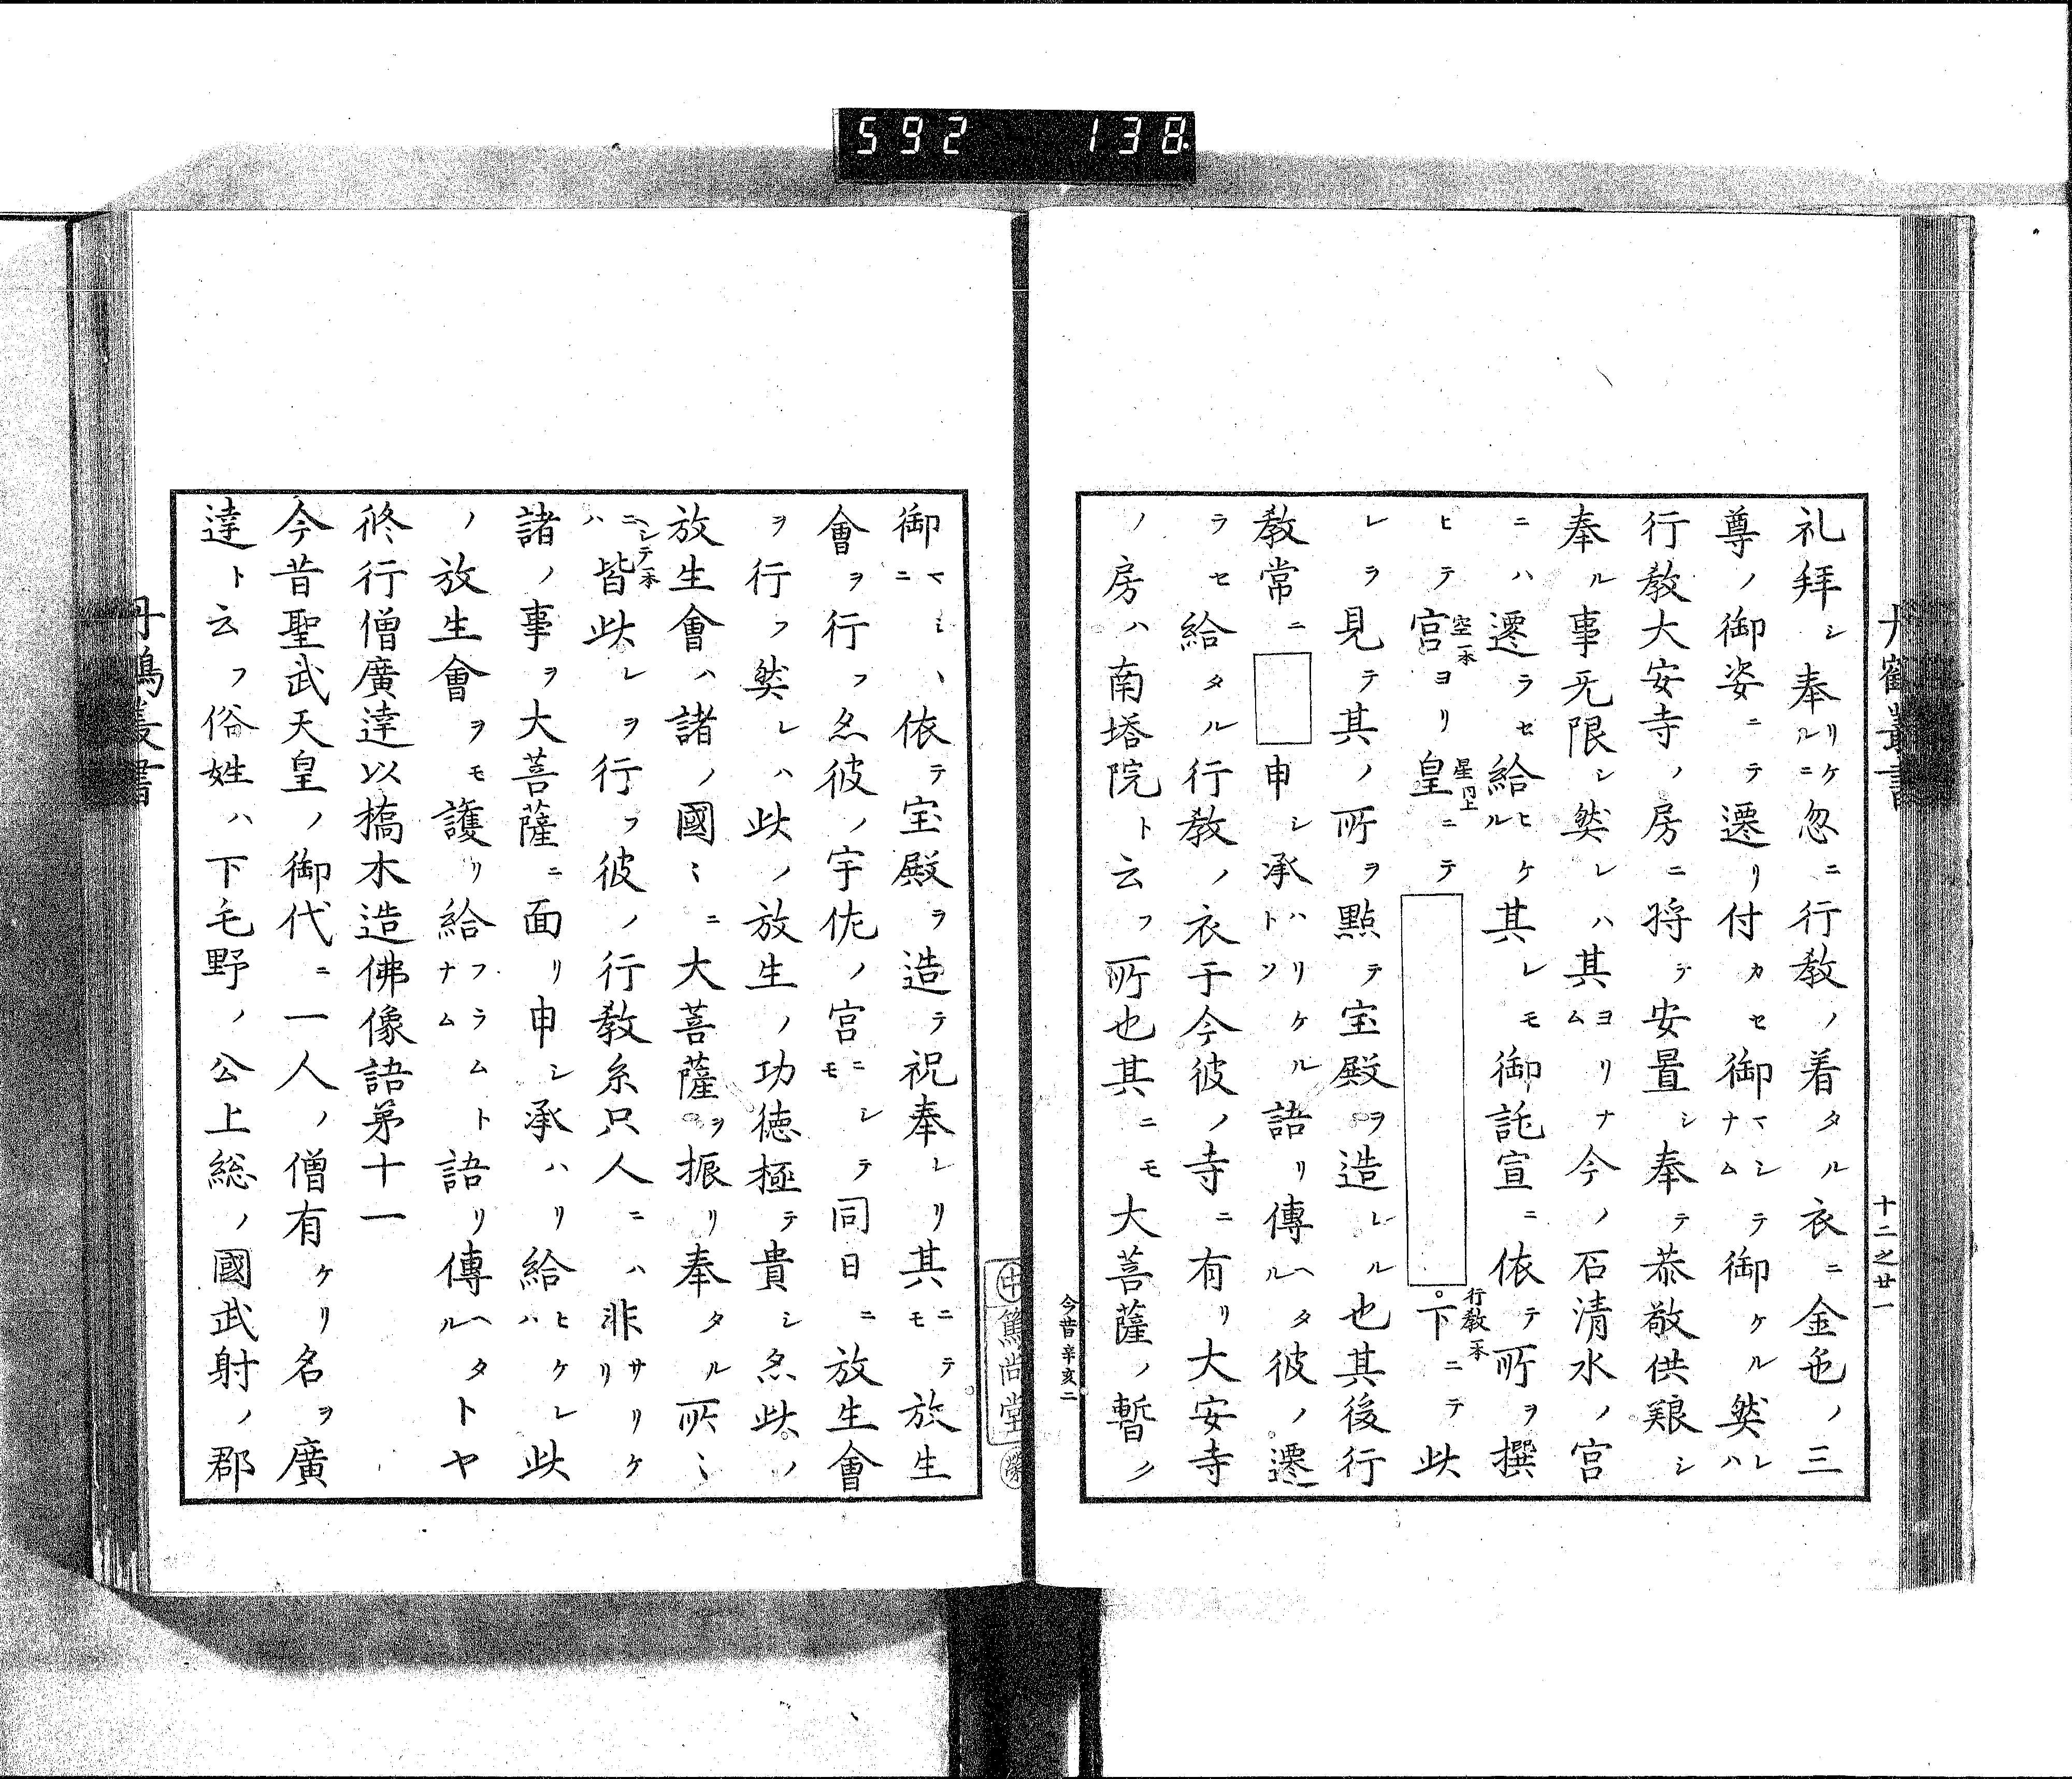 592 138
丹鶴叢書
十二之廿一
礼拜シ奉リケルニ忽ニ行教ノ着タル衣ニ金色ノ三
尊ノ御姿ニテ遷リ付カセ御マシテナム御ケル然レハ
行教大安寺ノ房ニ将テ安置シ奉テ恭敬供養シ
奉ル事无限シ然レハ其ヨリナム今ノ石清水ノ宮
ニハ遷ラセ給ヒケル其レモ御託宣ニ依テ所ヲ撰
ヒテ宮空一本ヨリ皇星同上ニテ 行教一本下ニテ此
レヲ見テ其ノ所ヲ點テ宝殿ヲ造レル也其後行
教常ニ 申シ承ハリケルトソ語リ傳ヘタル彼ノ遷
ラセ給タル行教ノ衣于今彼ノ寺ニ有リ大安寺
ノ房ハ南塔院ト云フ所也其ニモ大菩薩ノ暫ク
今昔辛亥二
篤尚堂
御マシニ、依テ宝殿ヲ造テ祝奉レリ其ニテモ放生
會ヲ行フ亦彼ノ宇佐ノ宮ニシテモ同日ニ放生會
ヲ行フ然レハ此ノ放生ノ功徳極テ貴シ亦此ノ
放生會ハ諸ノ國〻ニ大菩薩ヲ振リ奉タル所〻
ニシテ一本ニハ皆此レヲ行フ彼ノ行教糸只人ニハ非サリケリ
諸ノ事ヲ大菩薩ニ面リ申シ承ハリ給ヒケレハ此
ノ放生會ヲモ護リ給フラムトナム語リ傳ヘタルトヤ
修行僧廣達以橋木造佛像語第十一
今昔聖武天皇ノ御代ニ一人ノ僧有ケリ名ヲ廣
達ト云フ俗姓ハ下毛野ノ公上総ノ國武射ノ郡
丹鶴叢書